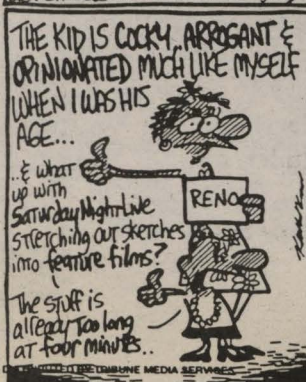 THE KID IS COCKY, ARROGANT &
OPINIONATED MUCH LIKE MYSELF
WHEN I WAS HIS
AGE...
..& WHAT
up with
Saturday Night Live
STRETCHING OUT SKETCHES
INTO feature films?
RENO
The STUFF is
already Too long
AT four minutes..
DISTRIBUTED BY TRIBUNE MEDIA SERVICES